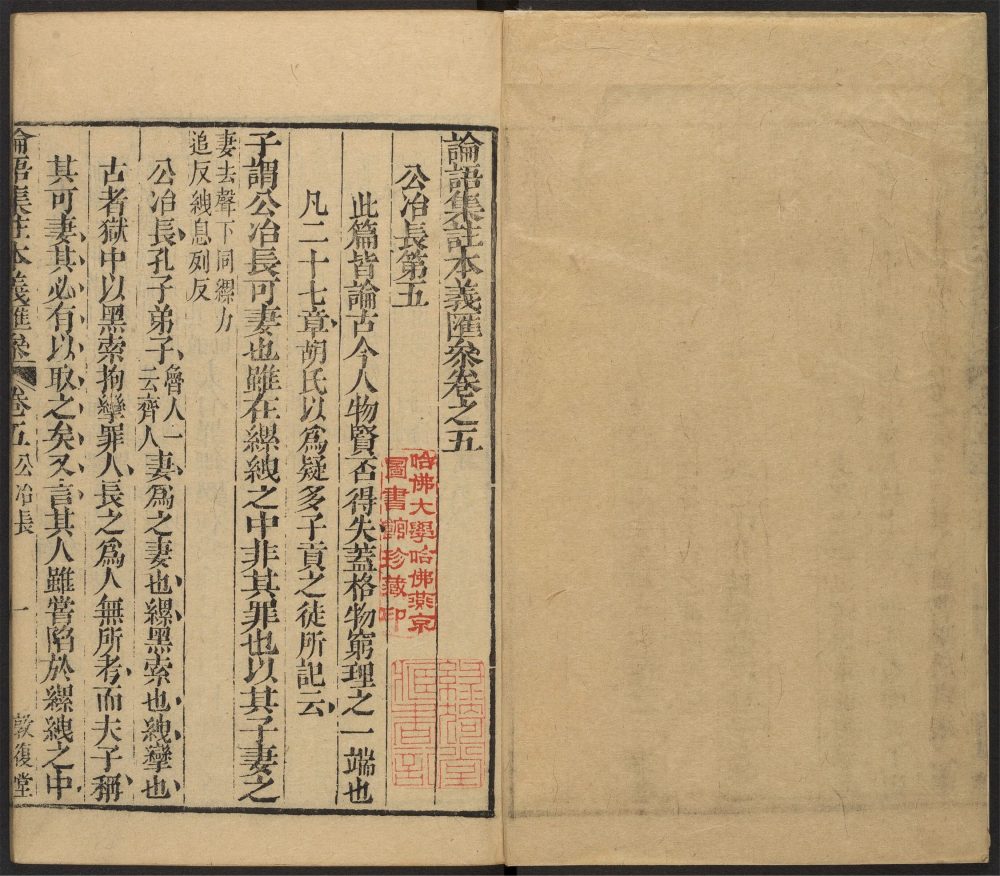 論語集註本義匯叅卷之五
公冶長第五
此篇皆論古今人物賢否得失蓋格物窮理之一端也
凡二十七章胡氏以爲疑多子貢之徒所記云
子謂公冶長可妻也雖在縲絏之中非其罪也以其子妻之
妻去聲下同縲力
追反絏息列反
公冶長孔子弟子魯人一云齊人妻爲之妻也縲黑索也絏攣也
古者獄中以黑索拘攣罪人長之爲人無所考而夫子稱
其可妻其必有以取之矣又言其人雖嘗陷於縲絏之中
論語集註本義匯叅 卷五 公冶長 一 敦復堂
哈佛大學哈佛燕京
圖書館珍藏印